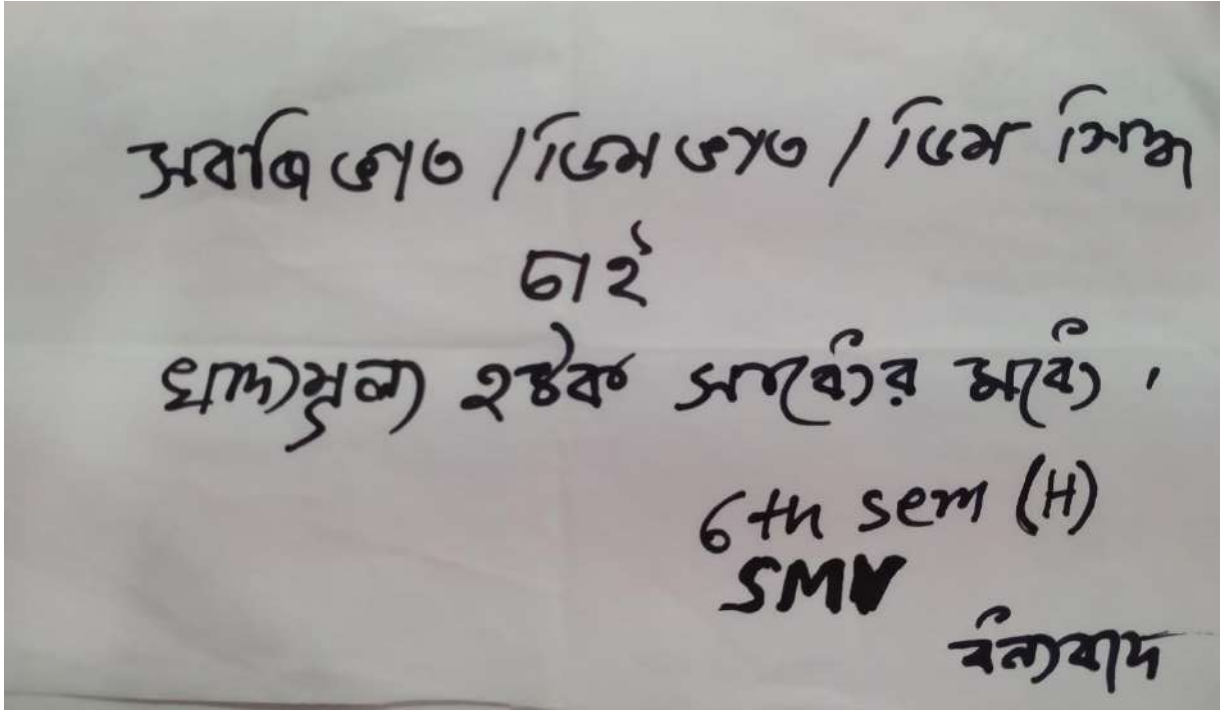 সবজি ভাত / ডিম ভাত / ডিম সিদ্ধ
চাই
খাদ্যমূল্য হউক সাধ্যের মধ্যে ,
6th sem (H)
SMV
ধন্যবাদ